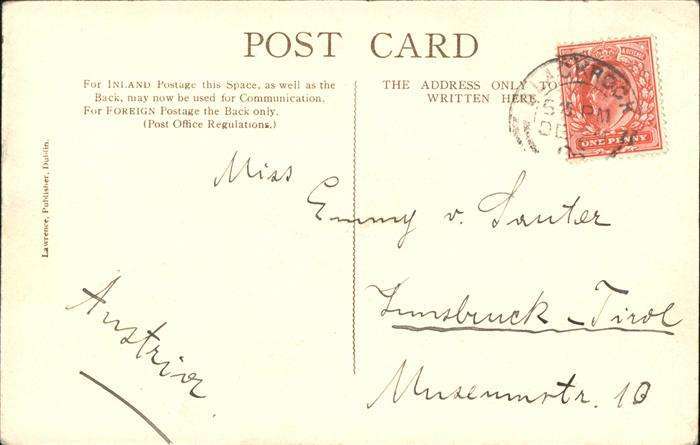 POST CARD
For INLAND Postage this Space, as well as the
Back, may now be used for Communication.
For FOREIGN Postage the Back only.
(Post Office Regulations.)
THE ADDRESS ONLY TO
WRITTEN HERE.
BLACKROCK
PM
ONE PENNY
Lawrence, Publisher, Dublin.
Miss
Emmy v. Sauter
Innsbruck - Tirol
Museumstr. 10
Austria